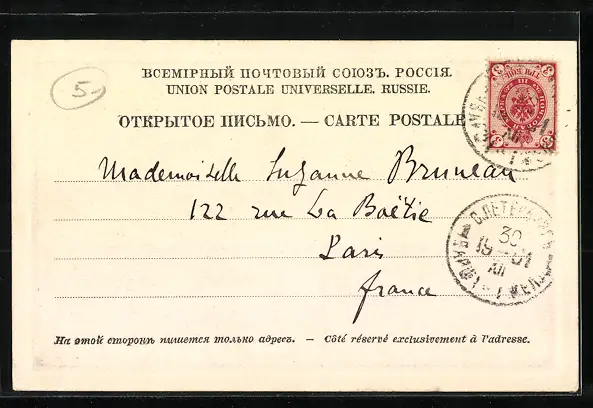 5-
ВСЕМІРНЫЙ ПОЧТОВЫЙ СОЮЗЪ. РОССІЯ.
UNION POSTALE UNIVERSELLE. RUSSIE.
ОТКРЫТОЕ ПИСЬМО. — CARTE POSTALE
Mademoiselle Suzanne Bruneau
122 rue La Boëtie
Paris
france
С.ПЕТЕРБУРГЪ
30
19 - 01
XII
На этой сторонѣ пишется только адресъ. — Côté réservé exclusivement à l'adresse.